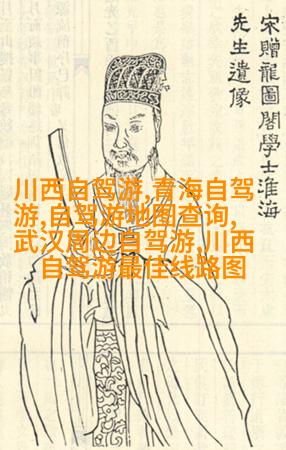 宋贈龍圖閣學士淮海
先生遺像
川西自驾游,青海自驾
游,自驾游地图查询,
武汉周边自驾游,川西
自驾游最佳线路图